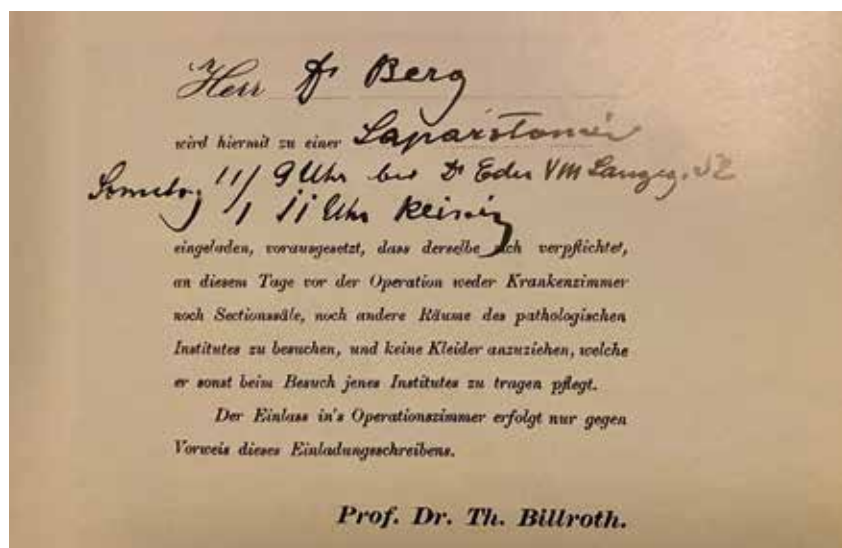 Herr Dr Berg
wird hiermit zu einer Laparotomie
11/1 9 Uhr bei Dr Eder VIII Langeg.
11 Uhr
eingeladen, vorausgesetzt, dass derselbe sich verpflichtet,
an diesem Tage vor der Operation weder Krankenzimmer
noch Sectionssäle, noch andere Räume des pathologischen
Institutes zu besuchen, und keine Kleider anzuziehen, welche
er sonst beim Besuch jenes Institutes zu tragen pflegt.
Der Einlass in's Operationszimmer erfolgt nur gegen
Vorweis dieses Einladungsschreibens.
Prof. Dr. Th. Billroth.